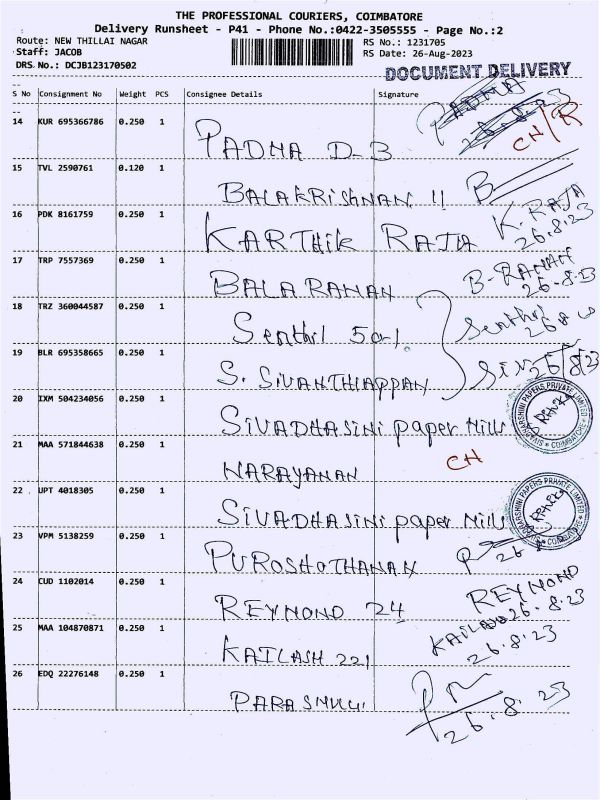 THE PROFESSIONAL COURIERS, COIMBATORE
Delivery Runsheet - P41 - Phone No.:0422-3505555 - Page No.:2
Route: NEW THILLAI NAGAR
RS No.: 1231705
Staff: JACOB
RS Date: 26-Aug-2023
DRS No.: DCJB123170502
DOCUMENT DELIVERY
S No Consignment No Weight PCS Consignee Details Signature
PADMA
26-8-23
CH/R
14 KUR 695366786 0.250 1
PADMA D-B
15 TVL 2590761 0.120 1
BALAKRISHNAN 11 B
16 PDK 8161759 0.250 1
KARTHIK RAJA K. RAJA
26.8.23
17 TRP 7557369 0.250 1
BALA RAMAN B-RAMAN
26-8-23
18 TRZ 360044587 0.250 1
Senthil Senthil
19 BLR 695358665 0.250 1
S. SIVANTHIAPPAN 26/8/23
20 IXM 504234056 0.250 1
SIVADHASINI paper Mills
SIVADARSHINI PAPERS PRIVATE LIMITED
COIMBATORE
21 MAA 571844638 0.250 1
NARAYANAN CH
22 UPT 4018305 0.250 1
SIVADHASINI paper Mills
SIVADARSHINI PAPERS PRIVATE LIMITED
COIMBATORE
23 VPM 5138259 0.250 1
PUROSHOTHAMAN 26
24 CUD 1102014 0.250 1
REYMOND 24 REYMOND
26.8.23
25 MAA 104870871 0.250 1
KAILASH 221 KAILASH
26.8.23
26 EDQ 22276148 0.250 1
26.8.23